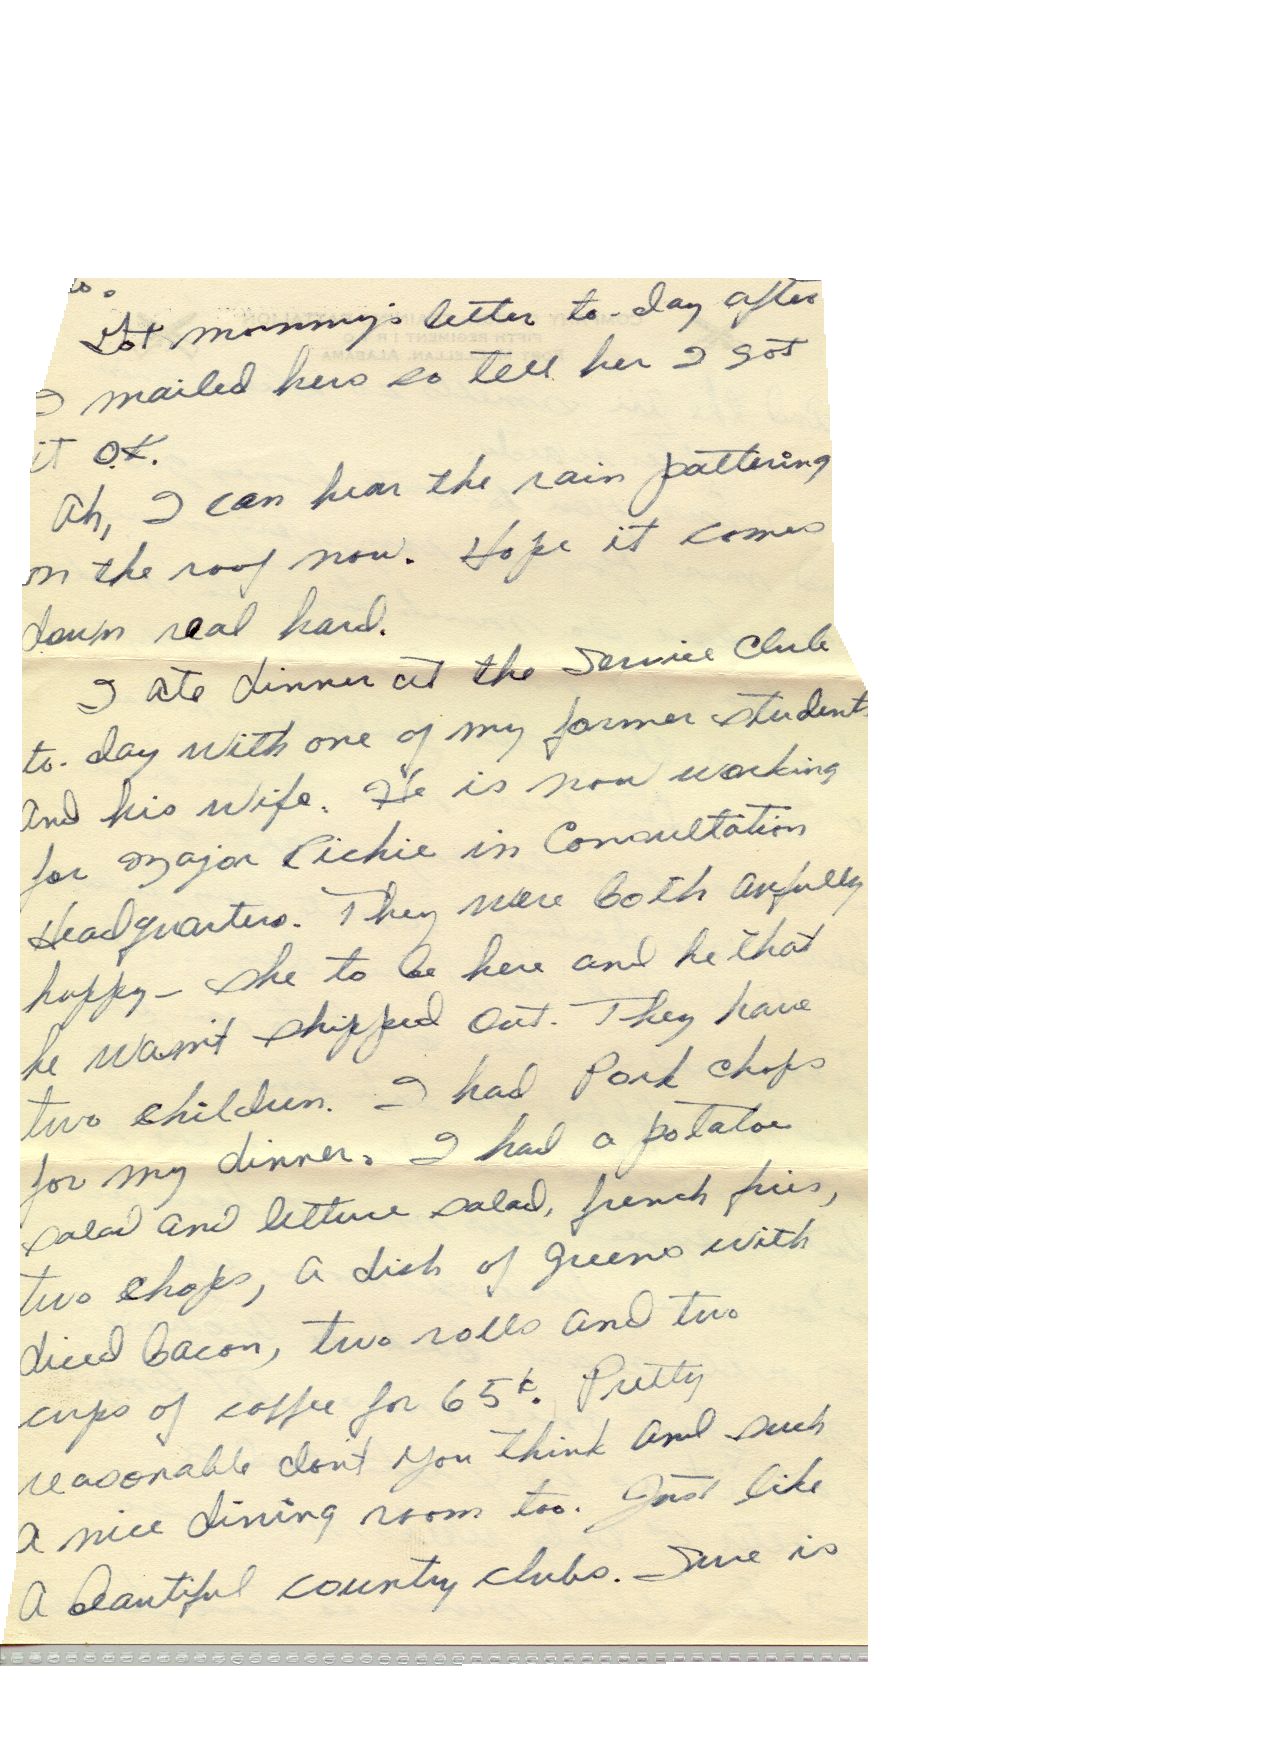 Got mommy's letter to-day after
I mailed hers so tell her I got
it O.K.
Ah, I can hear the rain pattering
on the roof now. Hope it comes
down real hard.
I ate dinner at the Service Club
to-day with one of my former students
and his wife. He is now working
for Major Richie in Consultation
Headquarters. They were both awfully
happy - she to be here and he that
he wasn't shipped out. They have
two children. I had Pork chops
for my dinner. I had a potatoe
salad and lettuce salad, french fries,
two chops, a dish of greens with
diced bacon, two rolls and two
cups of coffee for 65¢. Pretty
reasonable don't you think and such
a nice dining room too. Just like
a beautiful country clubs. Sure is